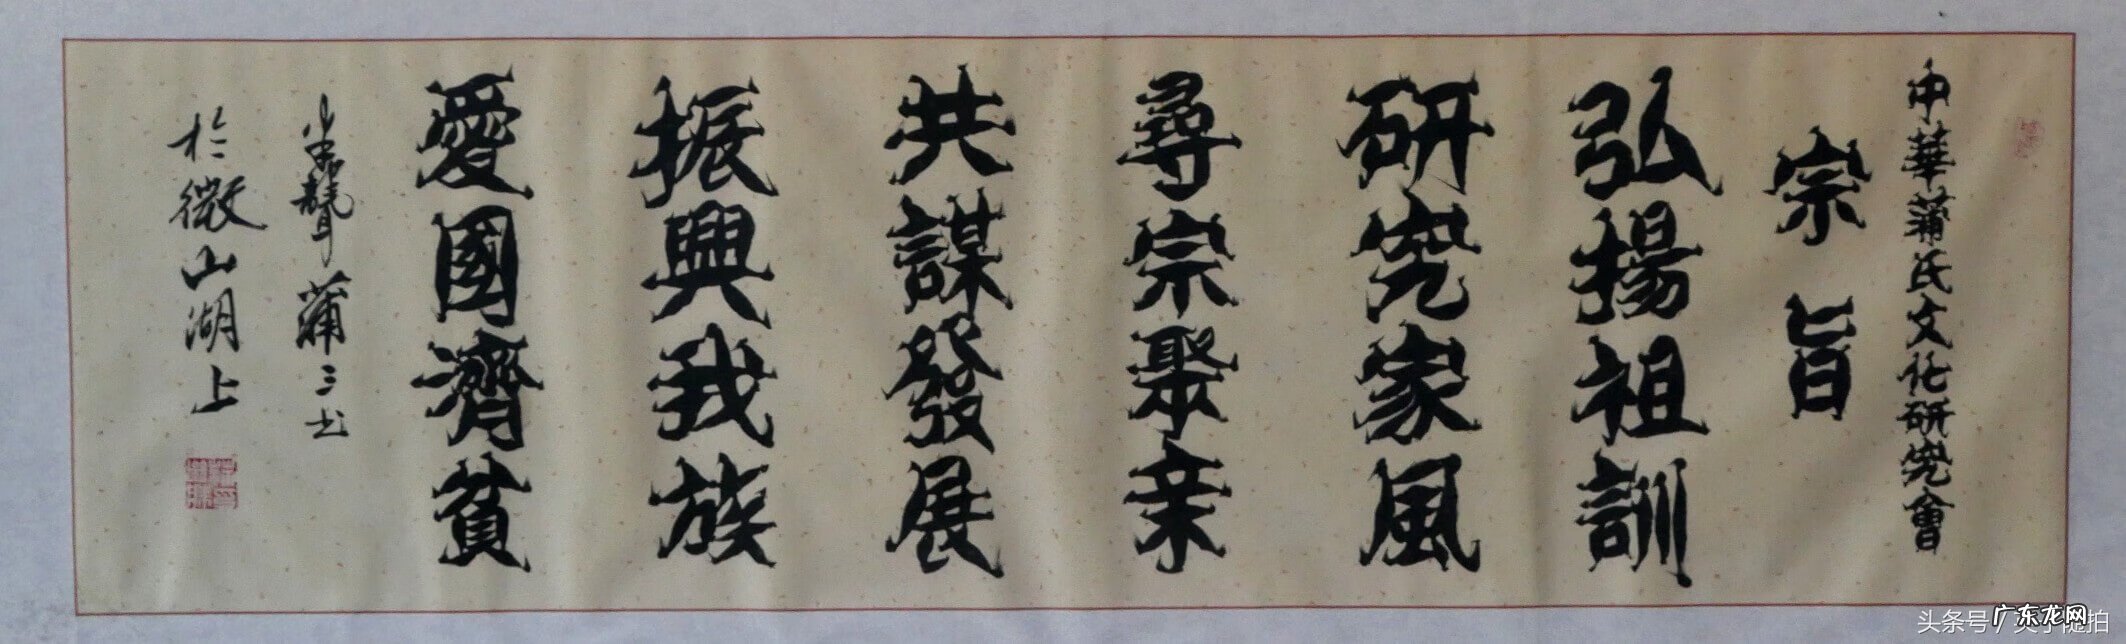 中華蒲氏文化研究會
宗旨
弘揚祖訓
研究家風
尋宗聚業
共謀發展
振興我族
愛國濟貧
聾蒲三书
於微山湖上
头条号
广东龙网